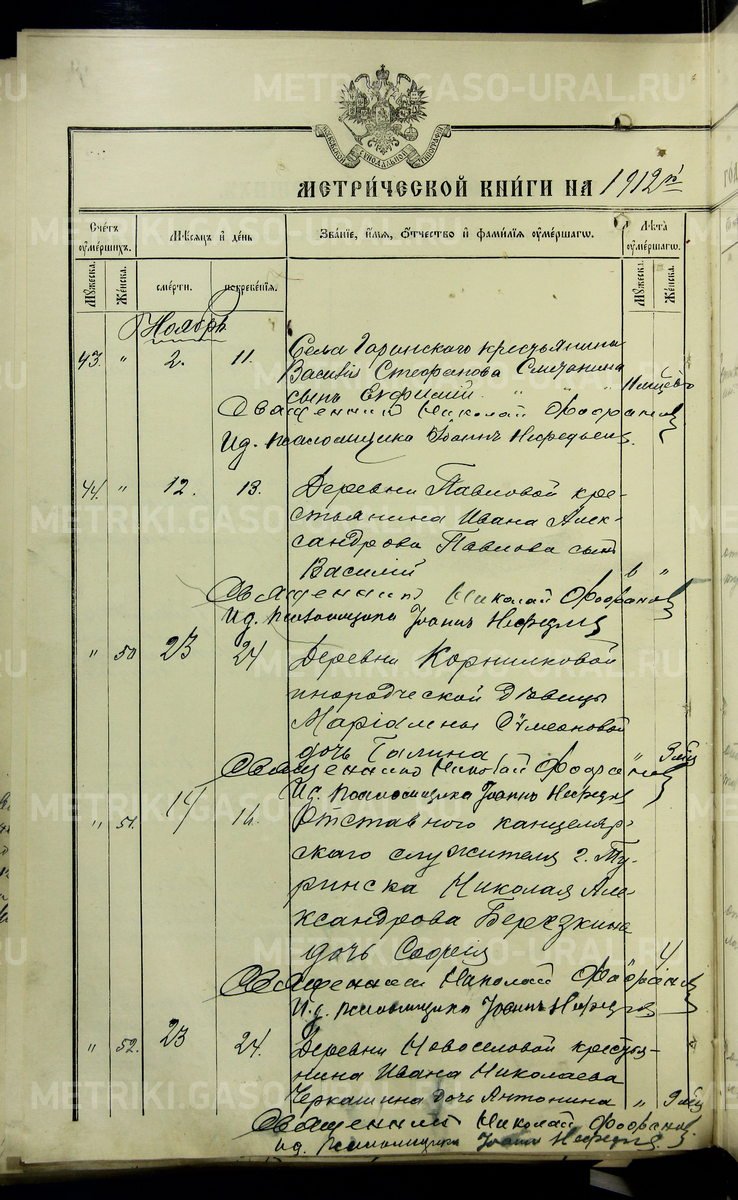 METRIKI.GASO-URAL.RU
МОСКОВСКОЙ СѴНОДАЛЬНОЙ ТИПОГРАФІИ
МЕТРИ́ЧЕСКОЙ КНИ́ГИ НА 1912 г.
Сче́тъ ѹме́ршихъ.
Мѣ́сяцъ и҆ де́нь
Зва́нїе, и҆́мя, ѻ҆́тчество и҆ фами́лїя ѹме́ршагѡ.
Лѣ́та ѹме́ршагѡ.
Мꙋ́жеска. Же́нска. сме́рти. погребе́нїя. Мꙋ́жеска. Же́нска.
Ноябрь
43. " 2. 11. Села Гаринскаго крестьянина
Василія Стефанова Сметанина
сынъ Евфимій. " "
Священникъ Николай Феофановъ
И.д. псаломщика Іоаннъ Нефедьевъ
44. " 12. 13. Деревни Павловой кре-
стьянина Ивана Алек-
сандрова Павлова сынъ
Василій "
Священникъ Николай Феофановъ
И.д. псаломщика Іоаннъ Нефедьевъ
" 50 23 24 Деревни Корниловой
инородческой дѣвицы
Маріамны Сѵмеоновой
дочь Галина " 3 мѣс
Священникъ Николай Феофановъ
И.д. псаломщика Іоаннъ Нефедьевъ
" 51. 14 16. Отставного канцеляр-
скаго служителя г. Ту-
ринска Николая Але-
ксандрова Березкина
дочь Софія " 4
Священникъ Николай Феофановъ
И.д. псаломщика Іоаннъ Нефедьевъ
" 52. 23 24. Деревни Новоселовой крестья-
нина Ивана Николаева
Черкашина дочь Антонина " 9 мѣс
Священникъ Николай Феофановъ
И.д. псаломщика Іоаннъ Нефедьевъ